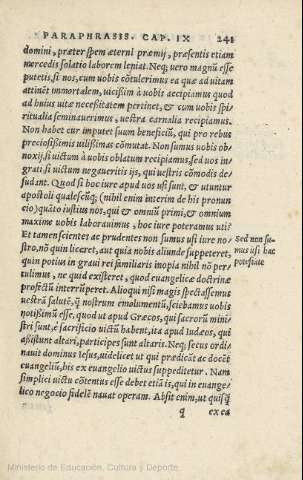 PARAPHRASIS. CAP. IX 241
domini, præter spem æterni præmij, præsentis etiam
mercedis solatio laborem leniat. Neq; uero magnũ esse
putetis, si nos, cum uobis cõtulerimus ea quæ ad uitam
attinẽt immortalem, uicißim à uobis accipiamus quod
ad huius uitæ neceßitatem pertinet, & cum uobis spi-
ritualia seminauerimus, uestra carnalia recipiamus.
Non habet cur imputet suum beneficiũ, qui pro rebus
preciosißimis uilißimas cõmutat. Non sumus uobis ob-
noxij, si uictum à uobis oblatum recipiamus, sed uos in-
grati, si uictum negaueritis ijs, qui uestris cõmodis de-
sudant. Quod si hoc iure apud uos usi sunt, & utuntur
apostoli qualescũq; (nihil enim interim de his pronun-
cio) quãto iustius nos, qui & omniũ primi, & omnium
maxime uobis laborauimus, hoc iure poteramus uti?
Et tamen scientes ac prudentes non sumus usi iure no-
stro, nõ quin liceret, aut quia nobis aliunde suppeteret,
quin potius in graui rei familiaris inopia nihil nõ per-
tulimus, ne quid existeret, quod euangelicæ doctrinæ
profectũ interrũperet. Alioqui nisi magis spectassemus
uestrã salutẽ, q̃ nostrum emolumentũ, sciebamus uobis
notißimũ esse, quod ut apud Græcos, qui sacrorũ mini-
stri sunt, è sacrificio uictũ habent, ita apud Iudæos, qui
aßistunt altari, participes sunt altaris. Neq; secus ordi-
nauit dominus Iesus, uidelicet ut qui prædicãt ac docẽt
euangeliũ, his ex euangelio uictus suppeditetur. Nam
simplici uictu cõtentus esse debet etiã is, qui in euange-
lico negocio fidelẽ nauat operam. Absit enim, ut quisq̃
q ex ea
Sed non su-
mus usi hac
potestate
Ministerio de Educación, Cultura y Deporte